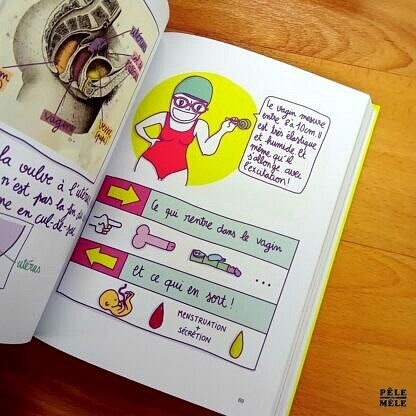 vagin
la vulve à l'utér
n'est pas la fin, ou
ne en cul-de-sac
utérus
Le vagin mesure
entre 8 à 10cm. Il
est très élastique
et humide et
même qu'il
s'allonge avec
l'excitation!
Ce qui rentre dans le vagin
...
et ce qui en sort!
MENSTRUATION
+
SÉCRÉTION
69
PÊLE
MÊLE